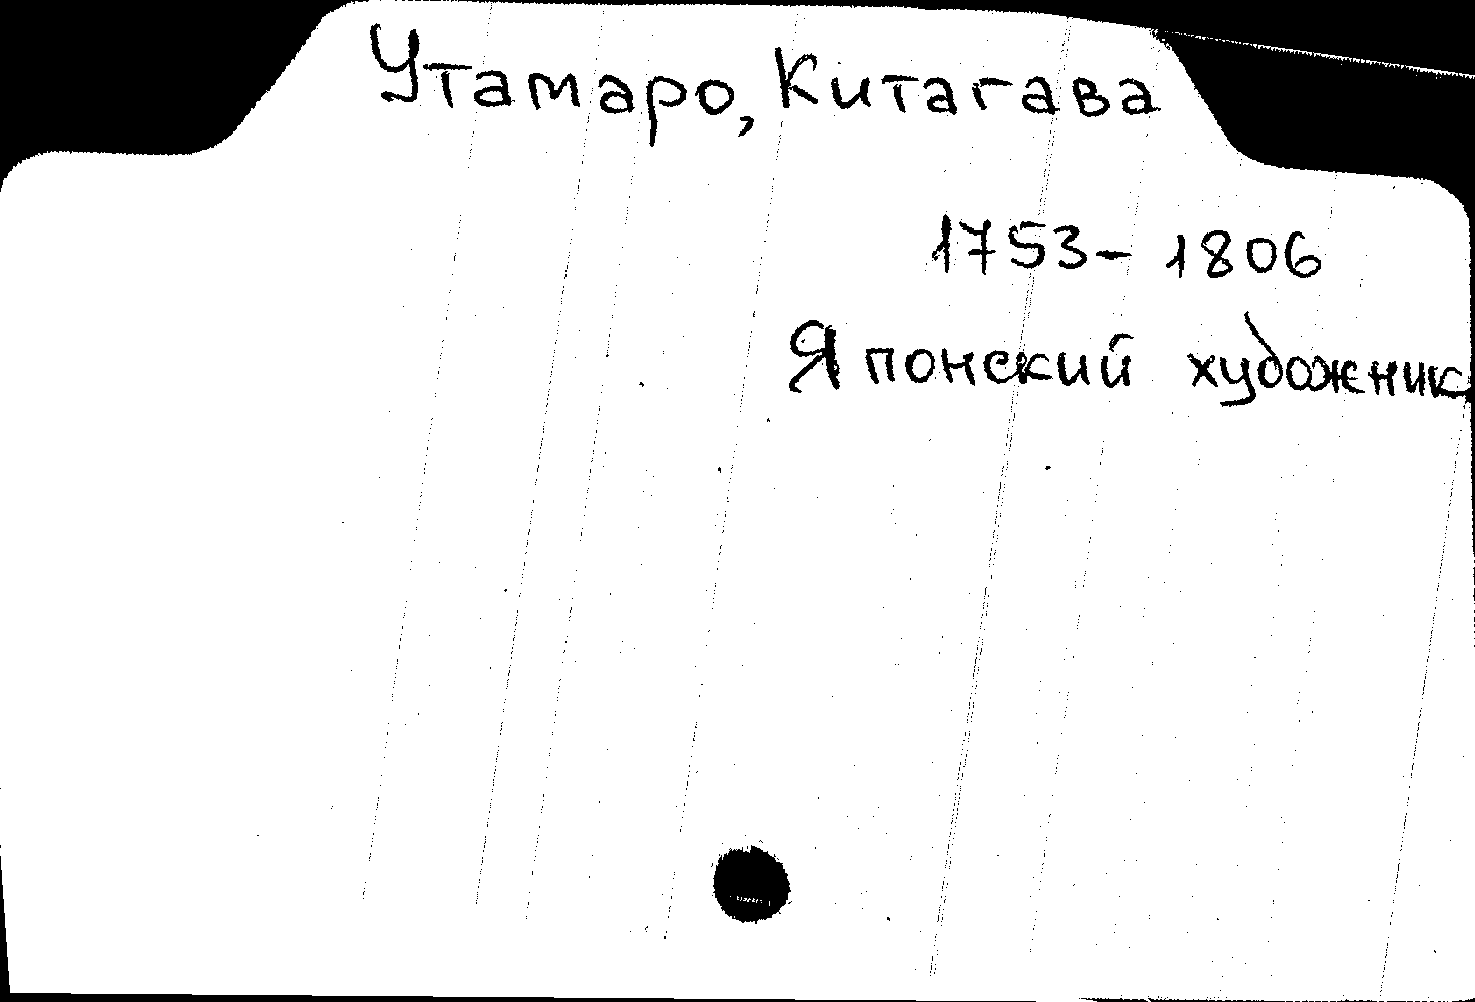 Утамаро, Китагава
1753 – 1806
Японский художник